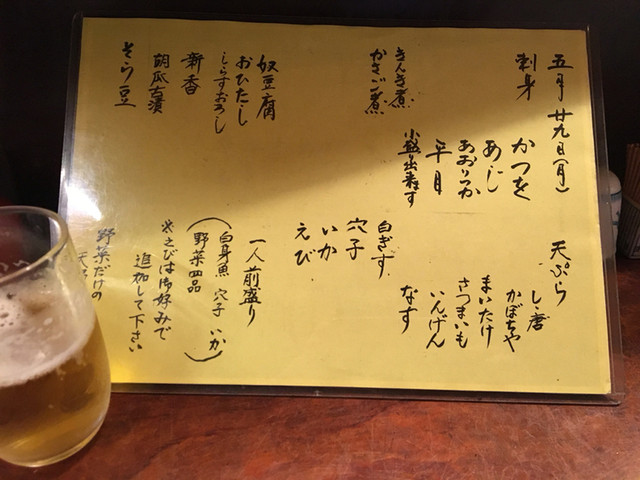 五月廿九日(月)
刺身
かつを
あじ
あおりいか
平目
小盛り出来ます
きんき煮
かさご煮
奴豆腐
おひたし
しらすおろし
新香
胡瓜古漬
そら豆
天ぷら
しし唐
かぼちゃ
まいたけ
さつまいも
いんげん
なす
白ぎす
穴子
いか
えび
一人前盛り
(白身魚 穴子 いか
野菜四品)
※えびは御好みで
追加して下さい
野菜だけの